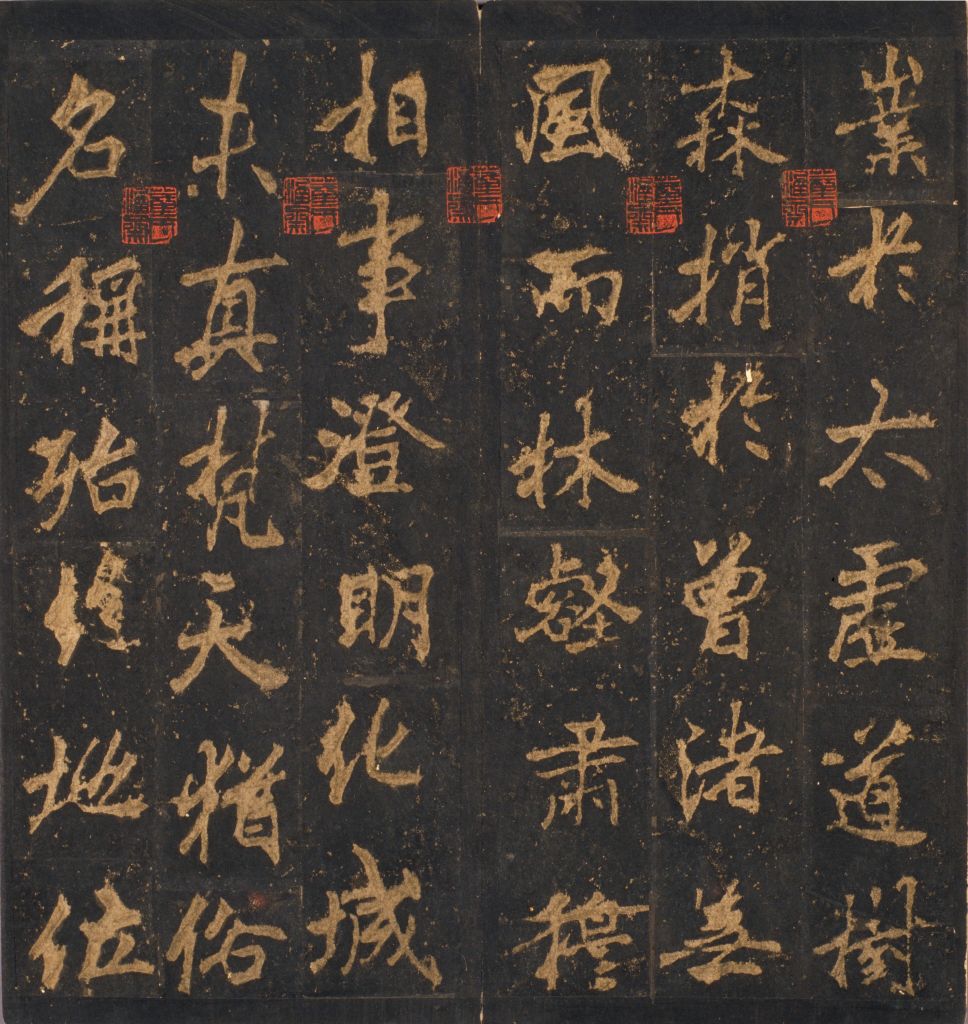 業於太虛道樹
森捎於曾渚無
風而林壑肅穆
相事澄明化城
未真梵天猶俗
名稱殆地位